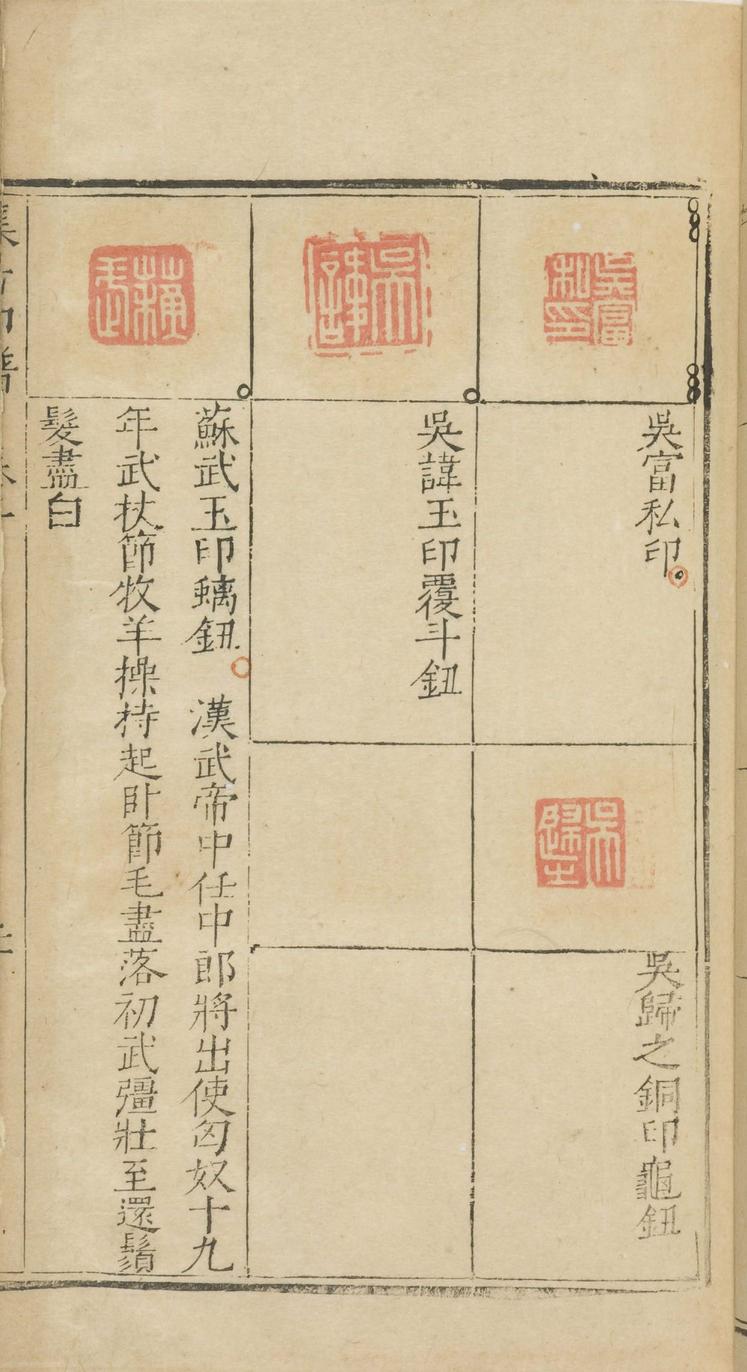 吳富私印
吳富私印
吳歸之
吳歸之銅印龜鈕
吳諱
吳諱玉印覆斗鈕
蘇武
蘇武玉印螭鈕 漢武帝中任中郎將出使匈奴十九
年武杖節牧羊操持起卧節毛盡落初武彊壯至還鬚
髮盡白